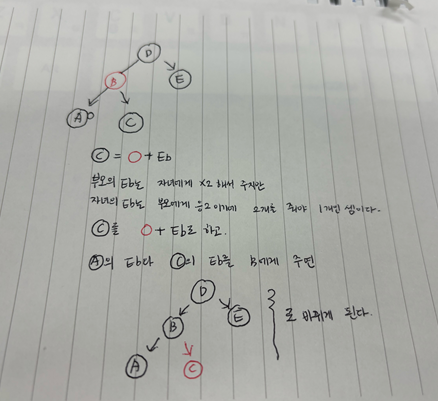 D
B E
A C
C = O + Eb
부모의 Eb는 자녀에게 x2 해서 주지만
자녀의 Eb는 부모에게 2개를 줘야 1개인 셈이다.
C를 O + Eb로 하고.
A의 Eb와 C의 Eb를 B에게 주면
D
B E
A C
로 바뀌게 된다.